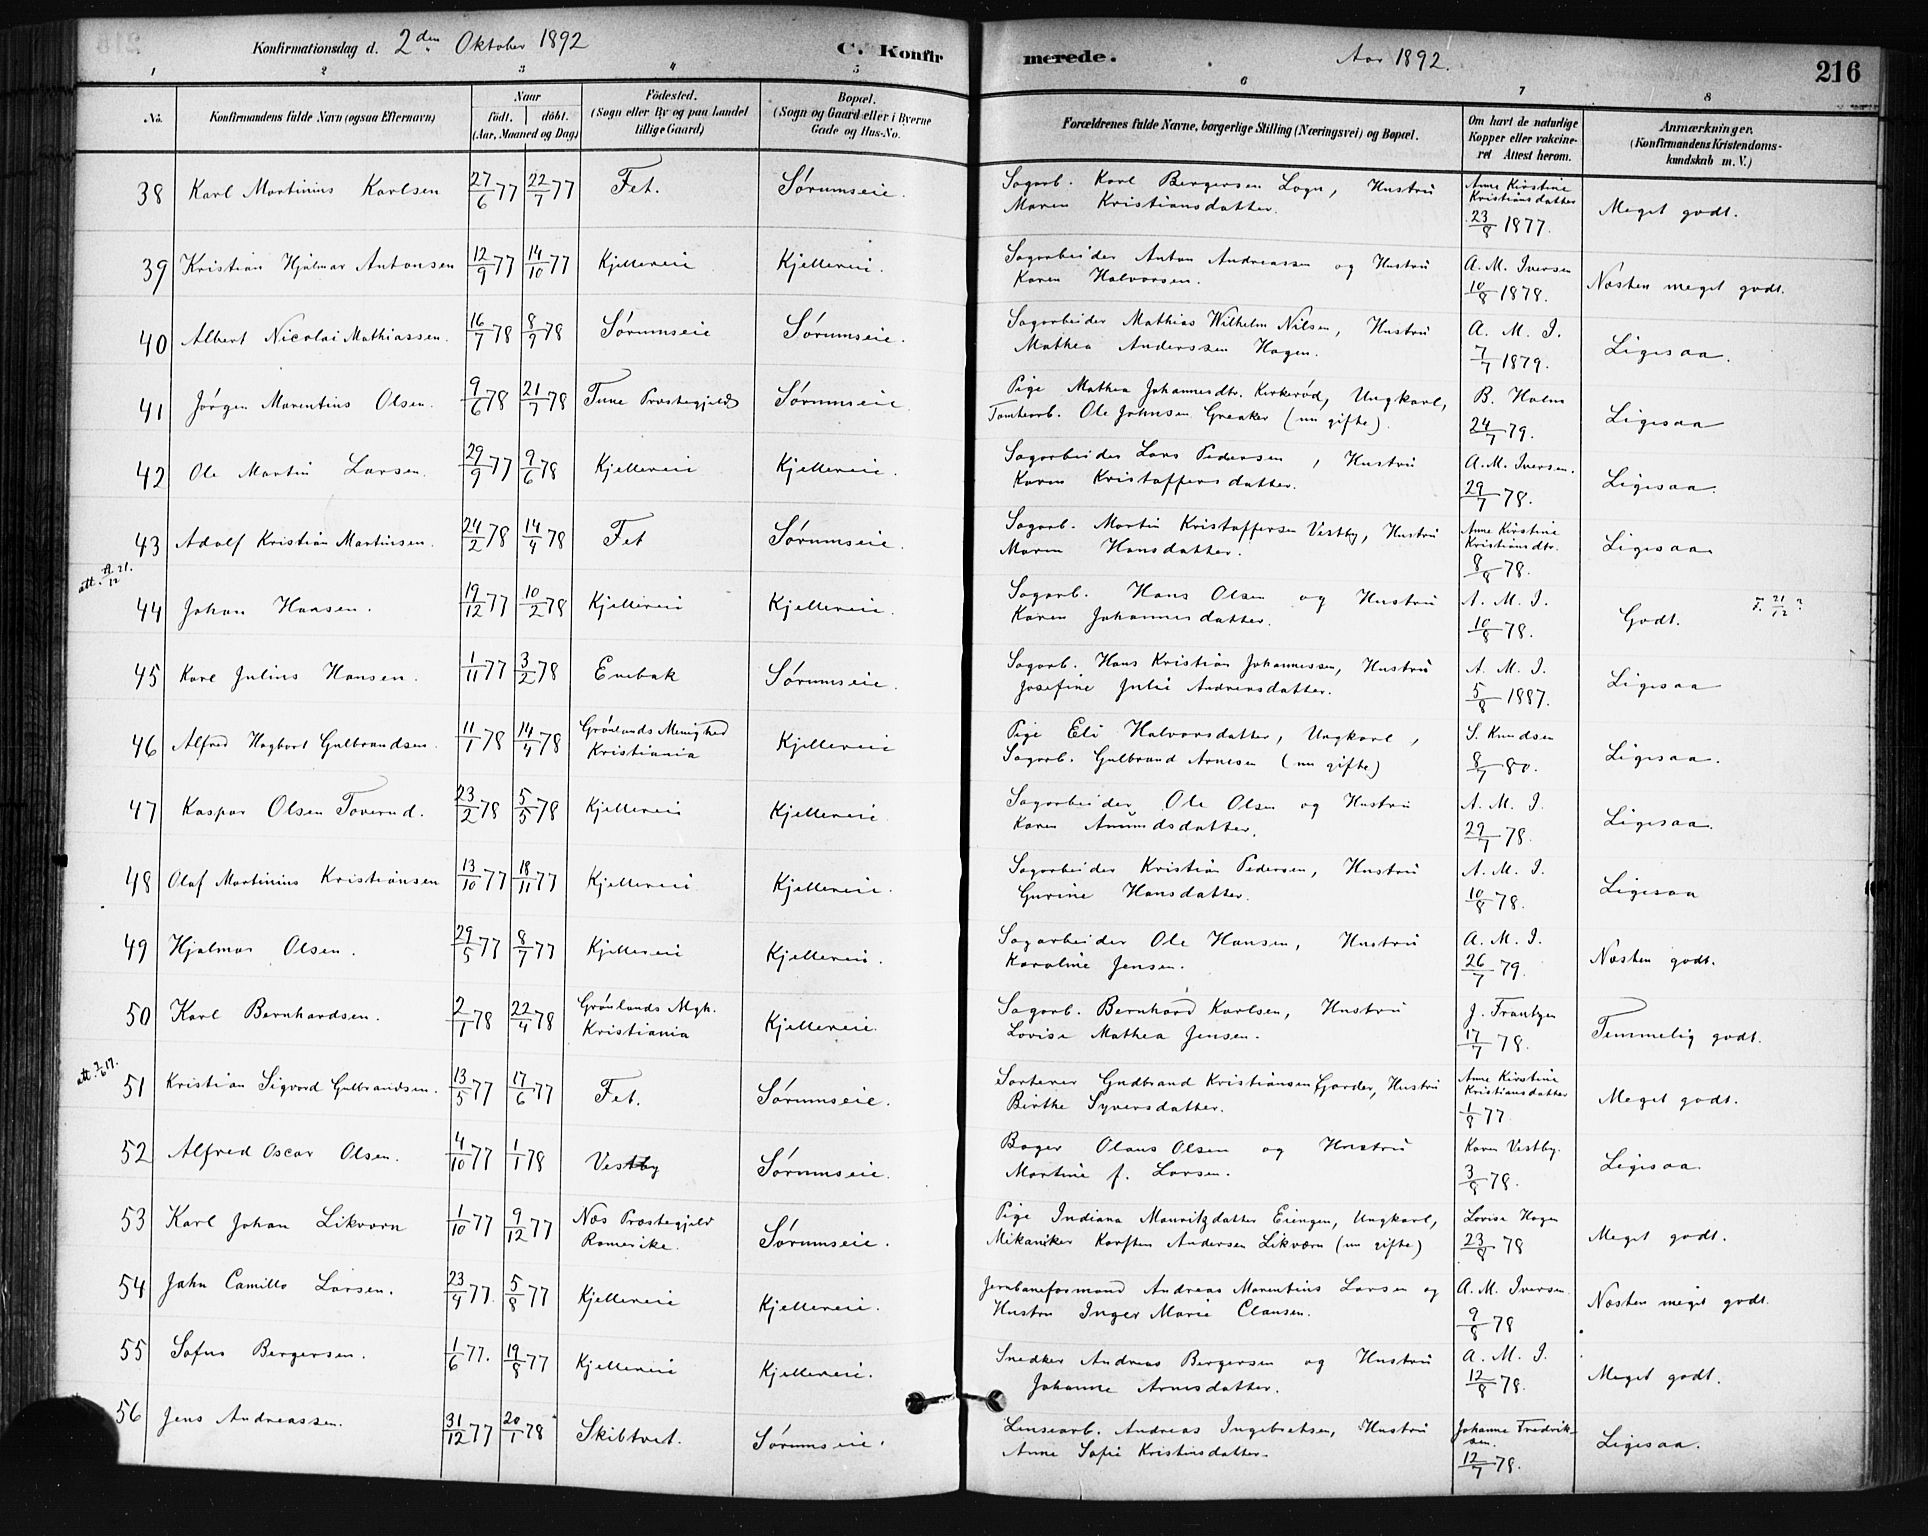 Konfirmationsdag d. 2den Oktober 1892 C. Konfirmerede. Aar 1892. 216
1 2 3 4 5 6 7 8
No. Konfirmandens fulde Navn (ogsaa Efternavn) Naar født. døbt. (Aar, Maaned og Dag) Fødested. (Sogn eller By og paa Landet tillige Gaard) Bopæl. (Sogn og Gaard eller i Byerne Gade og Hus-No. Forældrenes fulde Navne, borgerlige Stilling (Næringsvei) og Bopæl. Om havt de naturlige Kopper eller vakcineret Attest herom. Anmærkninger. (Konfirmandens Kristendomskundskab m. V.)
38 Karl Martinius Karlsen 27/6 77 22/7 77 Fet. Sørumseie. Sagarb. Karl Bergersen Logn, Hustru Maren Kristiansdatter. Anne Kirstine Kristiansdatter 23/8 1877. Meget godt.
39 Kristian Hjalmar Antonsen 12/9 77 14/10 77 Kjellereie Kjellereie. Sagarbeider Anton Andreassen og Hustru Karen Halvorsen. A. M. Iversen 10/8 1878. Næsten meget godt.
40 Albert Nicolai Mathiassen. 16/7 78 8/9 78 Sørumseie Sørumseie. Sagarbeider Mathias Wilhelm Nilsen, Hustru Mathea Anderssen Hagen. A. M. I. 7/7 1879. Ligesaa.
41 Jørgen Marentius Olsen. 9/6 78 21/7 78 Tune Præstegjeld Sørumseie. Pige Mathea Johannesdtr. Kirkerød, Ungkarl, Tomtearb. Ole Johnsen Greaker (nu gifte). B. Holm 24/7 79. Ligesaa
42 Ole Martin Larsen. 29/9 77 9/6 78 Kjellereie Kjellereie. Sagarbeider Lars Pedersen, Hustru Karen Kristoffersdatter. A. M. Iversen. 29/7 78. Ligesaa.
43 Adolf Kristian Martinsen. 24/2 78 14/4 78 Fet Sørumseie. Sagarb. Martin Kristoffersen Vestby, Hustru Maren Hansdatter. Anne Kirstine Kristiansdtr. 8/8 78. Ligesaa
att. fl. 21/12
44 Johan Hansen. 19/12 77 10/2 78 Kjellereie Kjellereie. Sagarb. Hans Olsen og Hustru Karen Johannesdatter. A. M. I. 10/8 78. Godt. F. 21/12 ?
45 Karl Julius Hansen. 1/11 77 3/2 78 Enebak Sørumseie. Sagarb. Hans Kristian Johannessen, Hustru Josefine Julie Andreasdatter. A. M. I. 5/8 1887. Ligesaa
46 Alfred Hagbart Gulbrandsen. 11/1 78 14/4 78 Grønlands Menighed Kristiania Kjellereie Pige Eli Halvorsdatter, Ungkarl, Sagarb. Gulbrand Arnesen (nu gifte) S. Knudsen 8/7 80. Ligesaa.
47 Kaspar Olsen Toverud. 23/2 78 5/5 78 Kjellereie Kjellereie. Sagarbeider Ole Olsen og Hustru Karen Amundsdatter. A. M. I. 29/7 78. Ligesaa.
48 Olaf Martinius Kristiansen 13/10 77 18/11 77 Kjellereie Kjellereie. Sagarbeider Kristian Pedersen, Hustru Gurine Hansdatter. A. M. I. 10/8 78. Ligesaa
49 Hjalmar Olsen. 29/5 77 8/7 77 Kjellereie Kjellereie. Sagarbeider Ole Hansen, Hustru Karoline Jensen. A. M. I. 26/7 79. Næsten godt.
50 Karl Bernhardsen. 2/1 78 22/4 78 Grønlands Mgh. Kristiania Kjellereie. Sagarb. Bernhard Karlsen, Hustru Lovise Mathea Jensen. J. Frantzen 17/7 78. Temmelig godt.
51 Kristian Sigvard Gulbrandsen. 13/5 77 17/6 77 Fet. Sørumseie. Sorterer Gudbrand Kristiansen Gjorder, Hustru Birthe Syversdatter. Anne Kirstine Kristiansdatter 1/8 77. Meget godt.
52 Alfred Oscar Olsen. 4/10 77 1/1 78 Vestby Sørumseie. Bager Olaus Olsen og Hustru Martine f. Larsen. Karen Vestby. 3/8 78. Ligesaa.
53 Karl Johan Likværn 1/10 77 9/12 77 Næs Præstegjeld Romerike. Sørumseie. Pige Indiana Mauritzdatter Eiengen, Ungkarl, Mikaniker Karsten Andersen Likværn (nu gifte) Lovise Hagen 23/8 78 Meget godt.
54 John Camillo Larsen. 23/4 77. 5/8 77 Kjellereie Kjellereie. Jernbaneformand Andreas Marentius Larsen og Hustru Inger Marie Clausen. A. M. Iversen. 9/8 78 Næsten meget godt.
55 Sofus Bergersen. 1/6 77. 19/8 77 Kjellereie Kjellereie. Snedker Andreas Bergersen og Hustru Johanne Arnesdatter. A. M. I. 12/8 78. Meget godt.
56 Jens Andreassen. 31/12 77 20/1 78 Skibtvet. Sørumseie. Lensearb. Andreas Ingebretsen, Hustru Anne Sofie Kristiansdatter. Johanne Fredriksen. 12/7 78. Ligesaa.